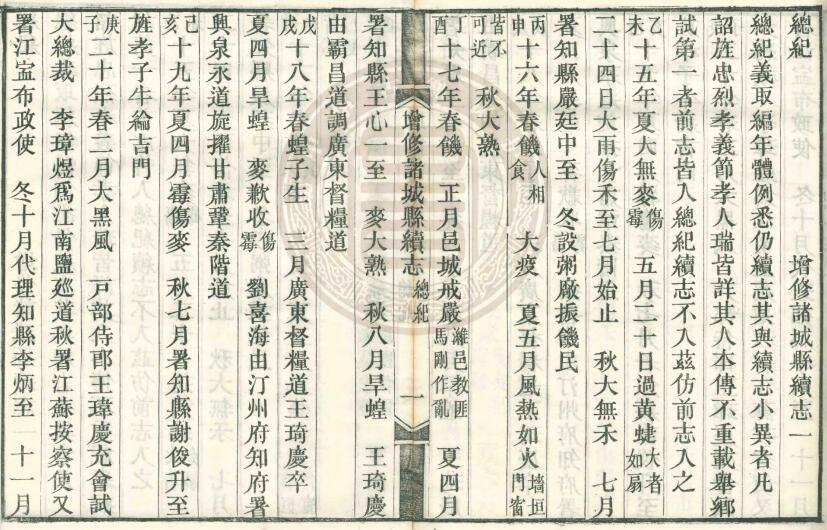 總紀　增修諸城縣續志一
總紀義取編年體例悉仍續志其與續志小異者凡
詔旌忠烈孝義節孝人瑞皆詳其人本傳不重載舉鄉
試第一者前志皆入總紀續志不入茲仿前志入之
乙未十五年夏大無麥傷霉　五月二十日過黃蜨大者如扇
二十四日大雨傷禾至七月始止　秋大無禾　七月
署知縣嚴廷中至　冬設粥廠振饑民
丙申十六年春饑人相食　大疫　夏五月風熱如火墻垣門窗
皆不可近　秋大熟
丁酉十七年春饑　正月邑城戒嚴濰邑教匪馬剛作亂　夏四月
增修諸城縣續志　總紀　一
署知縣王心一至　麥大熟　秋八月旱蝗　王琦慶
由霸昌道調廣東督糧道
戊戌十八年春蝗子生　三月廣東督糧道王琦慶卒
夏四月旱蝗　麥歉收傷霉　劉喜海由汀州府知府署
興泉永道旋擢甘肅鞏秦階道
己亥十九年夏四月霉傷麥　秋七月署知縣謝俊升至
旌孝子牛綸吉門
庚子二十年春三月大黑風　戸部侍郎王瑋慶充會試
大總裁　李璋煜爲江南鹽廵道秋署江蘇按察使又
署江寍布政使　冬十月代理知縣李炳至　十一月